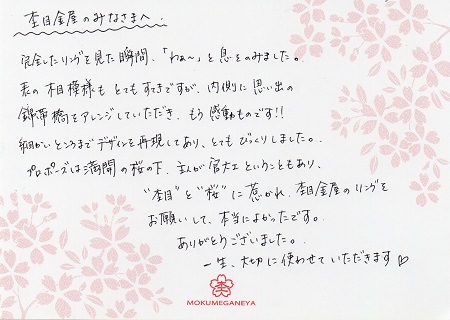 杢目金屋のみなさまへ.
完全したリングを見た瞬間、「わぁ〜」と息をのみました。
表の木目模様もとてもすてきですが、内側に思い出の
錦帯橋をアレンジしていただき、もう感動ものです!!
細かいところまでデザインを再現してあり、とてもびっくりしました。
プロポーズは満開の桜の下、主人が宮大工ということもあり、
"杢目"と"桜"に惹かれ、杢目金屋のリングを
お願いして、本当によかったです。
ありがとうございました。
一生、大切に使わせていただきます♡
MOKUMEGANEYA